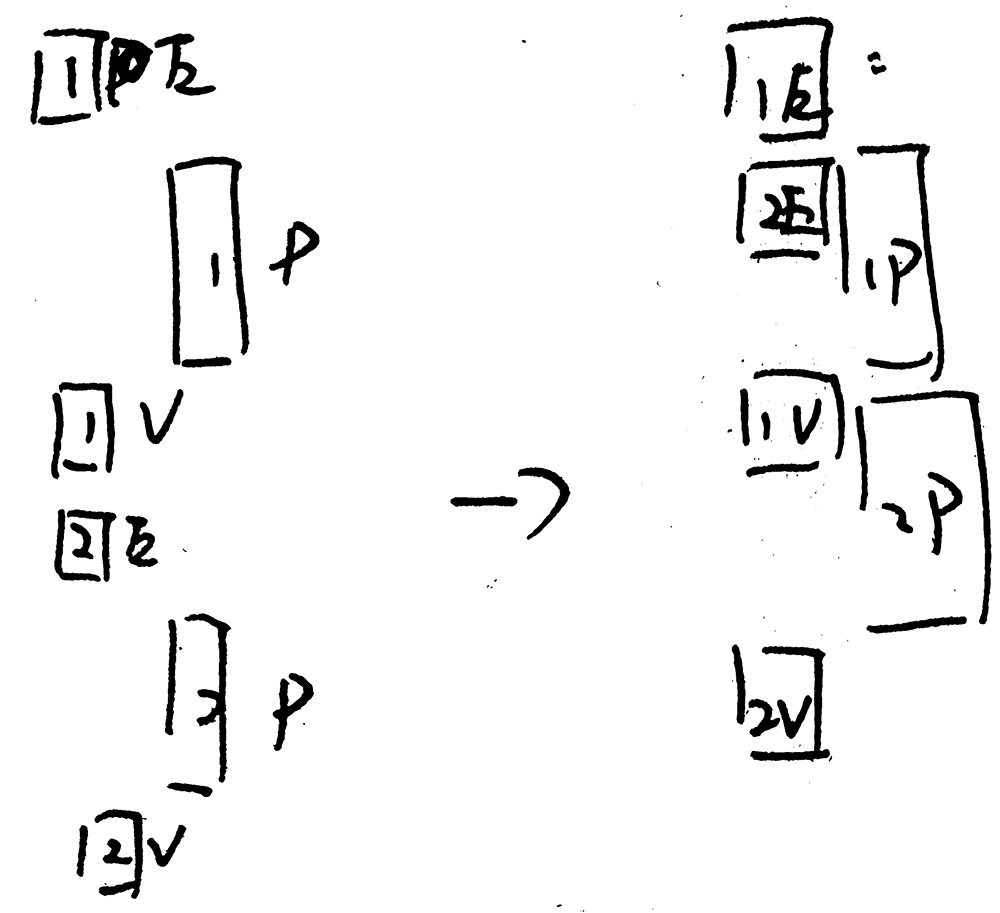 1 E
1 P
1 V
2 E
2 P
2 V
→
1E
2E
1P
1V
2P
2V